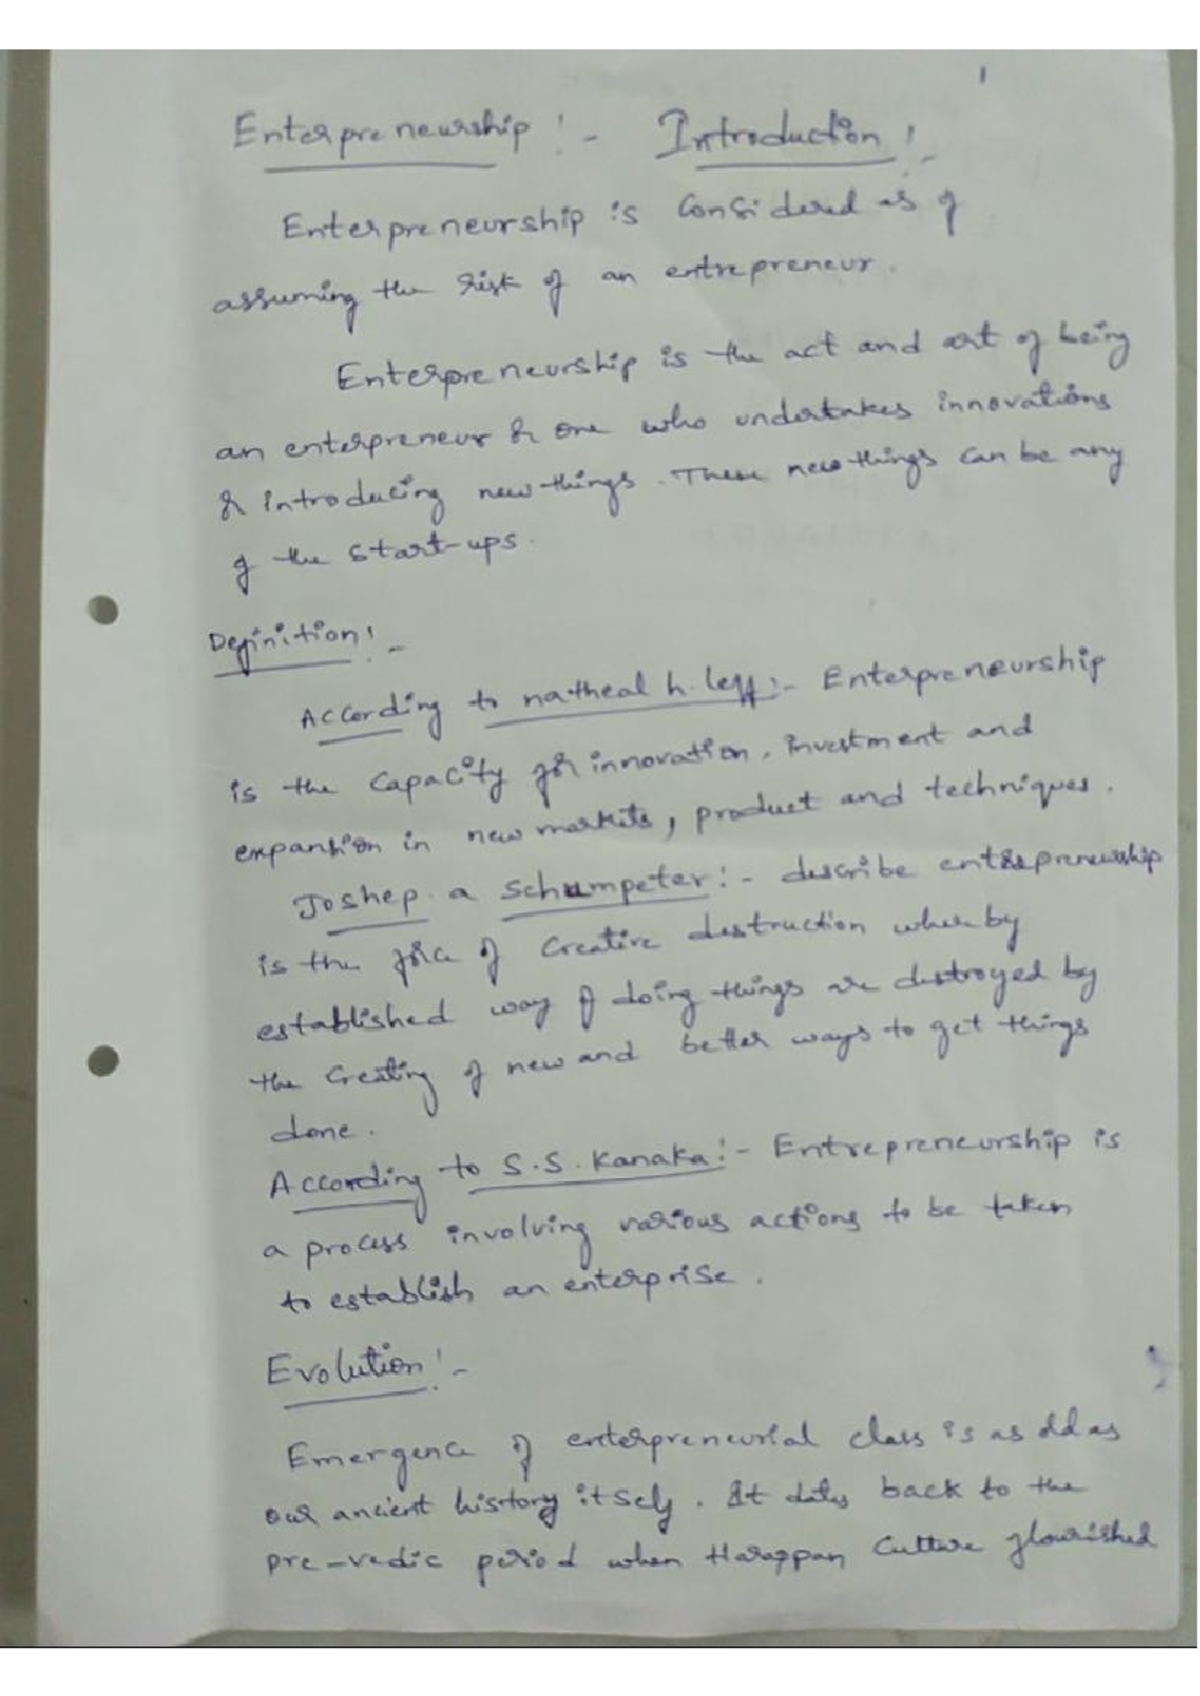 1
Enterpreneurship :- Introduction :-
Enterpreneurship is Considered as of
assuming the risk of an entrepreneur.
Enterpreneurship is the act and art of being
an enterpreneur & one who undertakes innovations
& introducing new things. These new things can be any
of the start-ups.
Definition :-
According to natheal h. leff :- Enterpreneurship
is the capacity for innovation, investment and
expansion in new markets, product and techniques.
Joshep a Schumpeter :- describe enterpreneurship
is the force of Creative destruction whereby
established way of doing things are destroyed by
the Creating of new and better ways to get things
done.
According to S.S. Kanaka :- Entrepreneurship is
a process involving various actions to be taken
to establish an enterprise.
Evolution :-
Emergence of enterpreneurial class is as old as
our ancient history itself. It dates back to the
pre-vedic period when Harappan Culture flourished